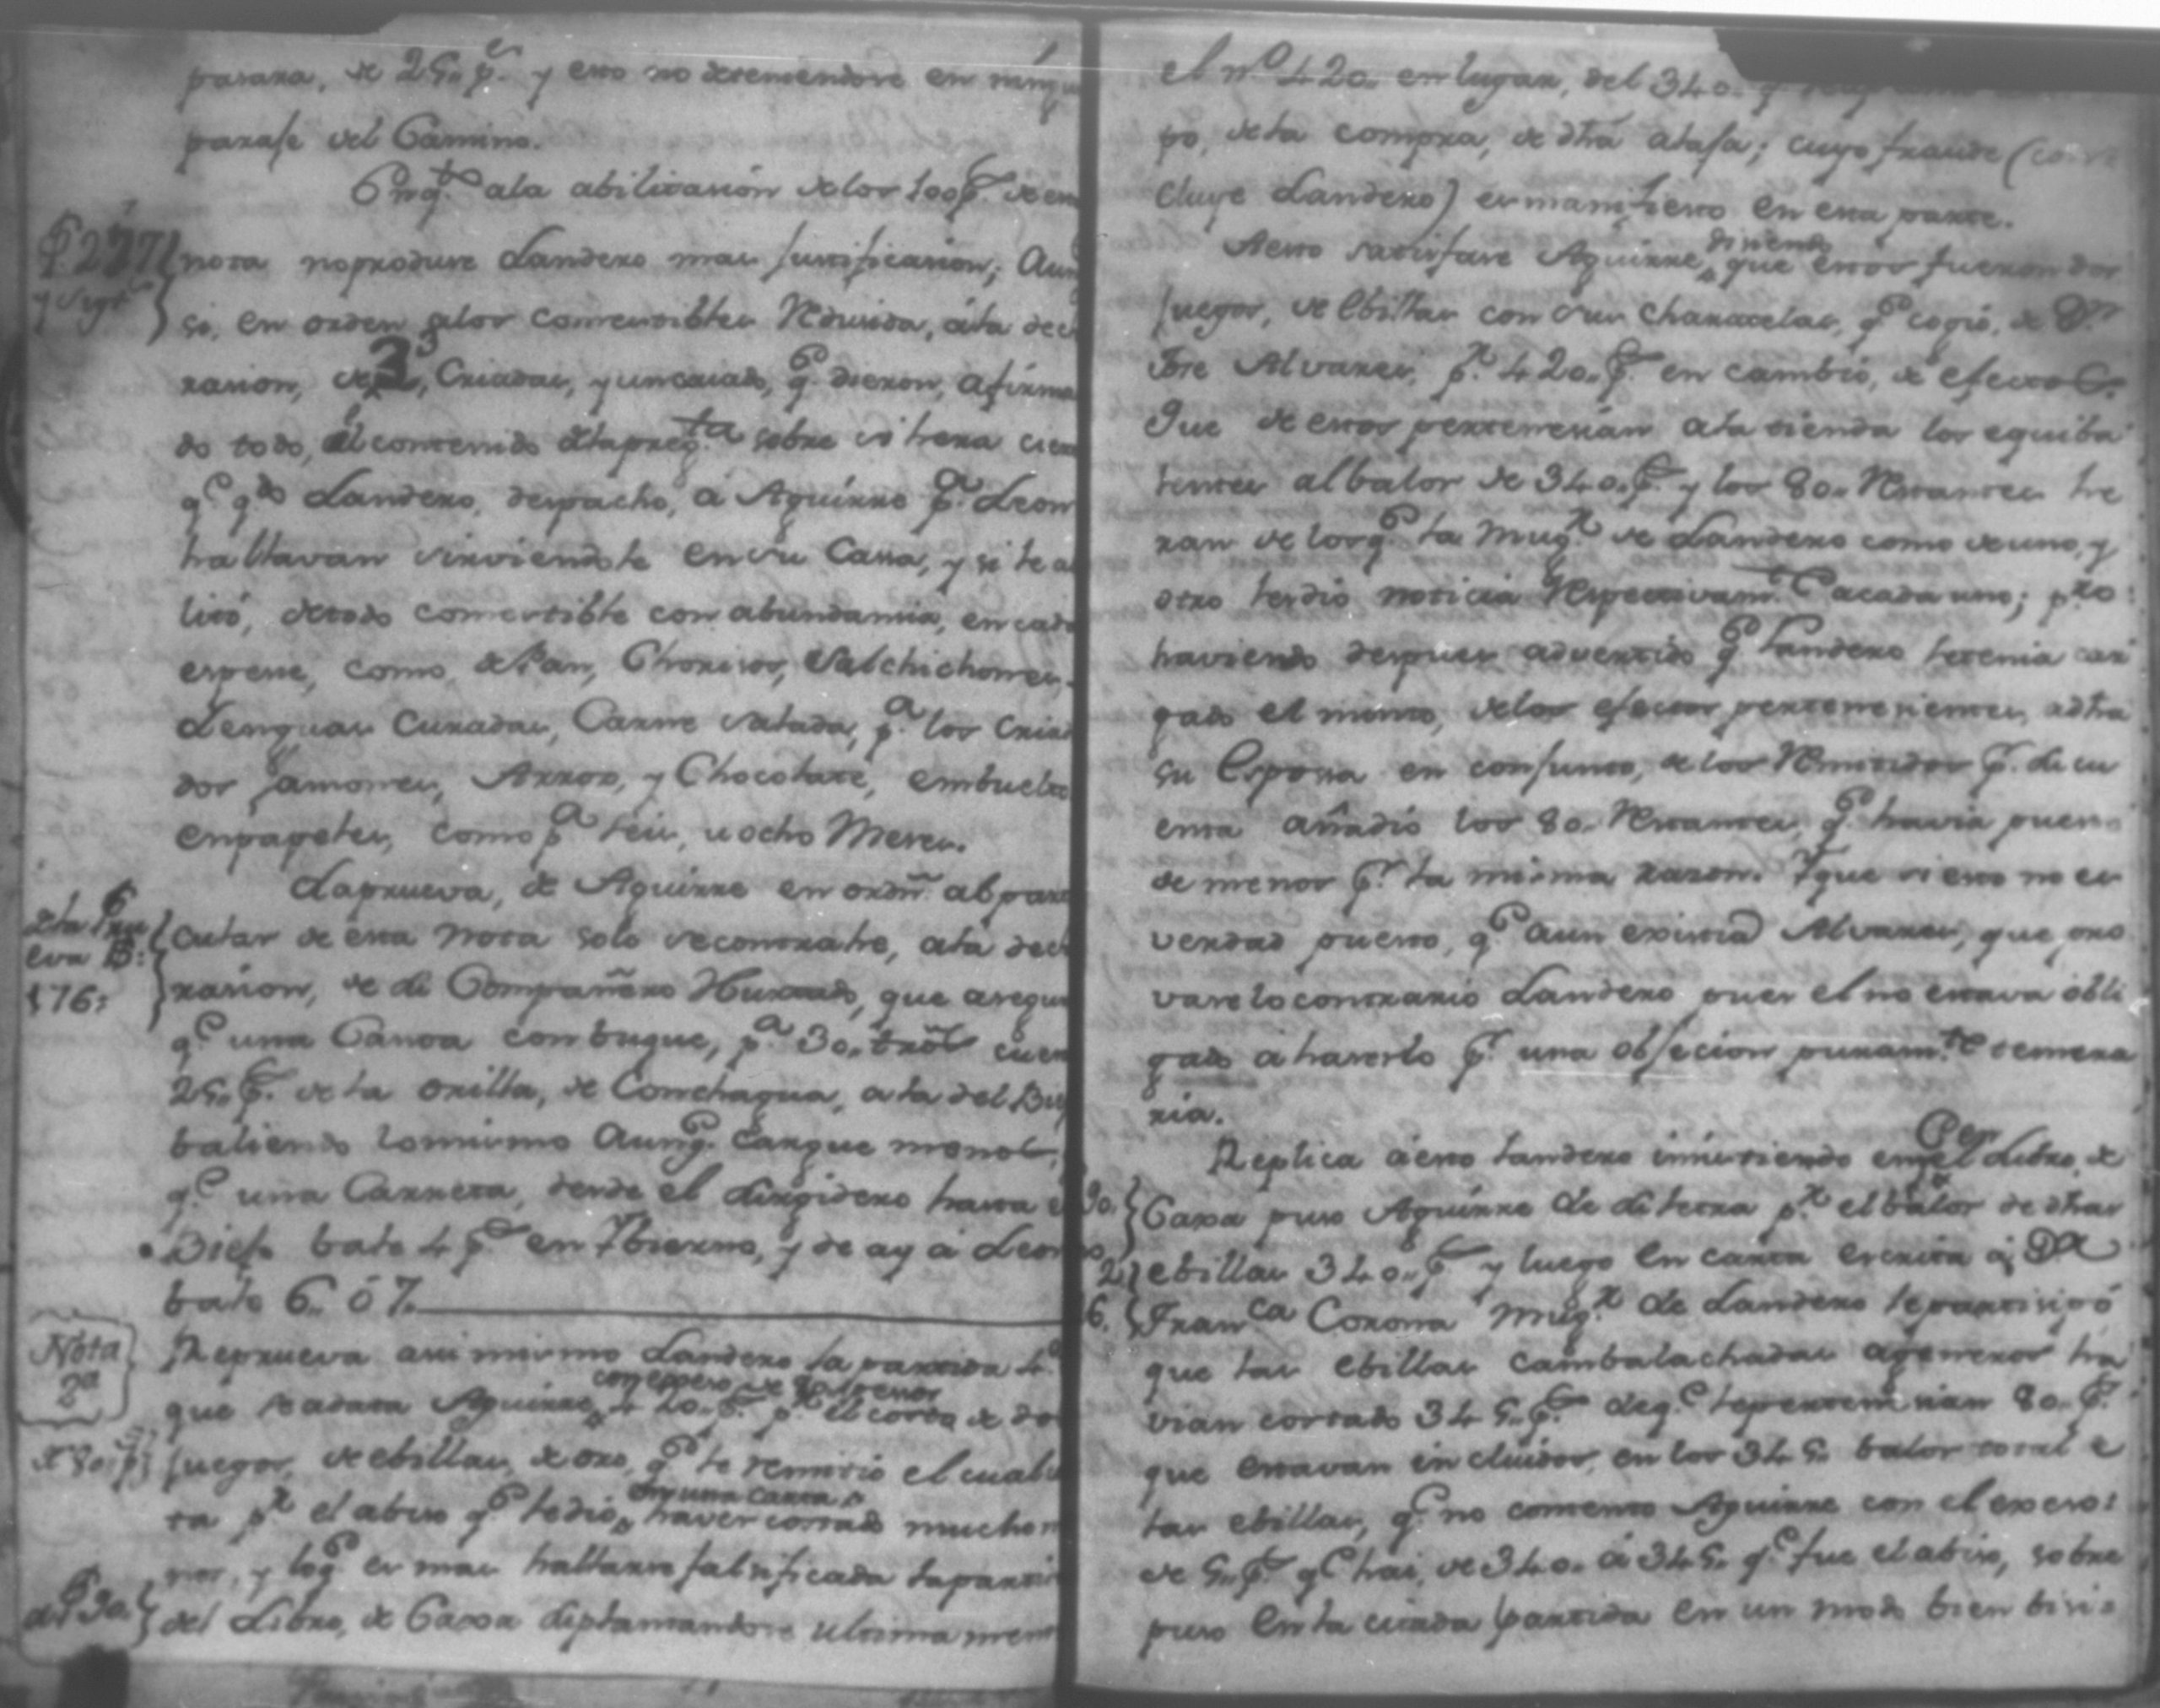 pasara, de 25. p.s y esto no deteniendose en ningu
paraje del Camino.
Enq.to ala abilitasión delos 100 p.s de esta
P. 227
y sigt.e
nota noproduse Landero mas justificasion; Aun
si, en orden alos comestibles Redusida, ála decl
rasion, de 3, Criadas, y un criado, q.e dieron, afirman
do todo, el contenido dela preg.ta sobre si hera cier
q.e q.do Landero, despachó, á Aguirre p.a Leon
hallavan sirviendole en su Cassa, y si le a
litó, detodo comestible con abundansia, en cada
espesie, como de Pan, Chorisos, Salchichones,
Lenguas Curadas, Carne Salada, p.a los Cria
dos Jamones, Arros, y Chocolate, embuelto
enpapeles, como p.a seis, u ocho Meses.
Laprueva, de Aguirre en ordn. alpar
dela Prue
eva B.
176:
cular de esta nota solo secontrahe, alá decl
rasion, de su Compañero Hurtado, que asegu
q.e una Canoa conbuque, p.a 30. cues
25. p.s de la orilla, de Conchagua, a la del Bie
baliendo lomismo Aunq.e cargue menos,
q.e una Carreta, desde el dirigidero hasta e
Biejo bale 4 p.s en Ybierno, y de ay á Leon
bale 6. ó 7.
Nota
8a
Reprueva asimismo Landero la partida 4.a
con espreso de
que se adata Aguirre 420. p.s p.r el costo de dos
de 80 p.s
juegos, de ebillas, de oro, q.e le remitió el cual
en una carta
ta p.r el abiso q.e ledió, haver costado mucho m
nos, y loq.e es mas hallarse falsificada lapartid
a f. 30.
del Libro, de Caxa suplantandose ultimamen
el n.o 420. en lugar, del 340. q.e
po, dela compra, de dha alaja; cuyo fraude (con
cluye Landero) es manifiesto en esta parte.
disiendo
Aesto satisfase Aguirre, que estos fueron dos
juegos, de Ebillas con sus charatelas, q.e cogió, de D.n
Jose Alvares, p.r 420. p.s en cambio, de efectos.
Que de estos pertenesian ala tienda los equiba
lentes albalor de 340. p.s y los 80. Restantes he
ran de losq.e la Mug.r de Landero como deuno, y
otro lesdió noticia Respectivam.te acada uno; p.ro
haviendo despues advertido q.e Landero letenia car
gado el monto, delos efectos pertenesientes adha
su Esposa en conjunto, de los Remitidos p.r su cu
enta añadio los 80. Restantes, q.e havia puesto
de menos p.r la misma rason. Yque si esto no es
verdad puesto, q.e aun existia Alvares, que pro
vase locontrario Landero pues el no estava obli
gado a haserlo p.r una objecion puram.te temera
ria.
Replica áesto Landero insistiendo en q.e en el Libro, de
30.
Caxa puso Aguirre de su letra p.r el balor de dhas
2
ebillas 340. p.s y luego en carta escrita á D.a
6.
Fran.ca Corona Mug.r de Landero leparticipó
que las ebillas cambalachadas agéneros ha
vian costado 345. p.s deq.e lepertenesian 80. p.s
que estavan incluidos, en los 345. balor total de
las ebillas, q.e no contento Aguirre con el exceso
de 5. p.s q.e hai, de 340. á 345. q.e fue el abiso, sobre
puso en la citada partida en un modo bien bisi